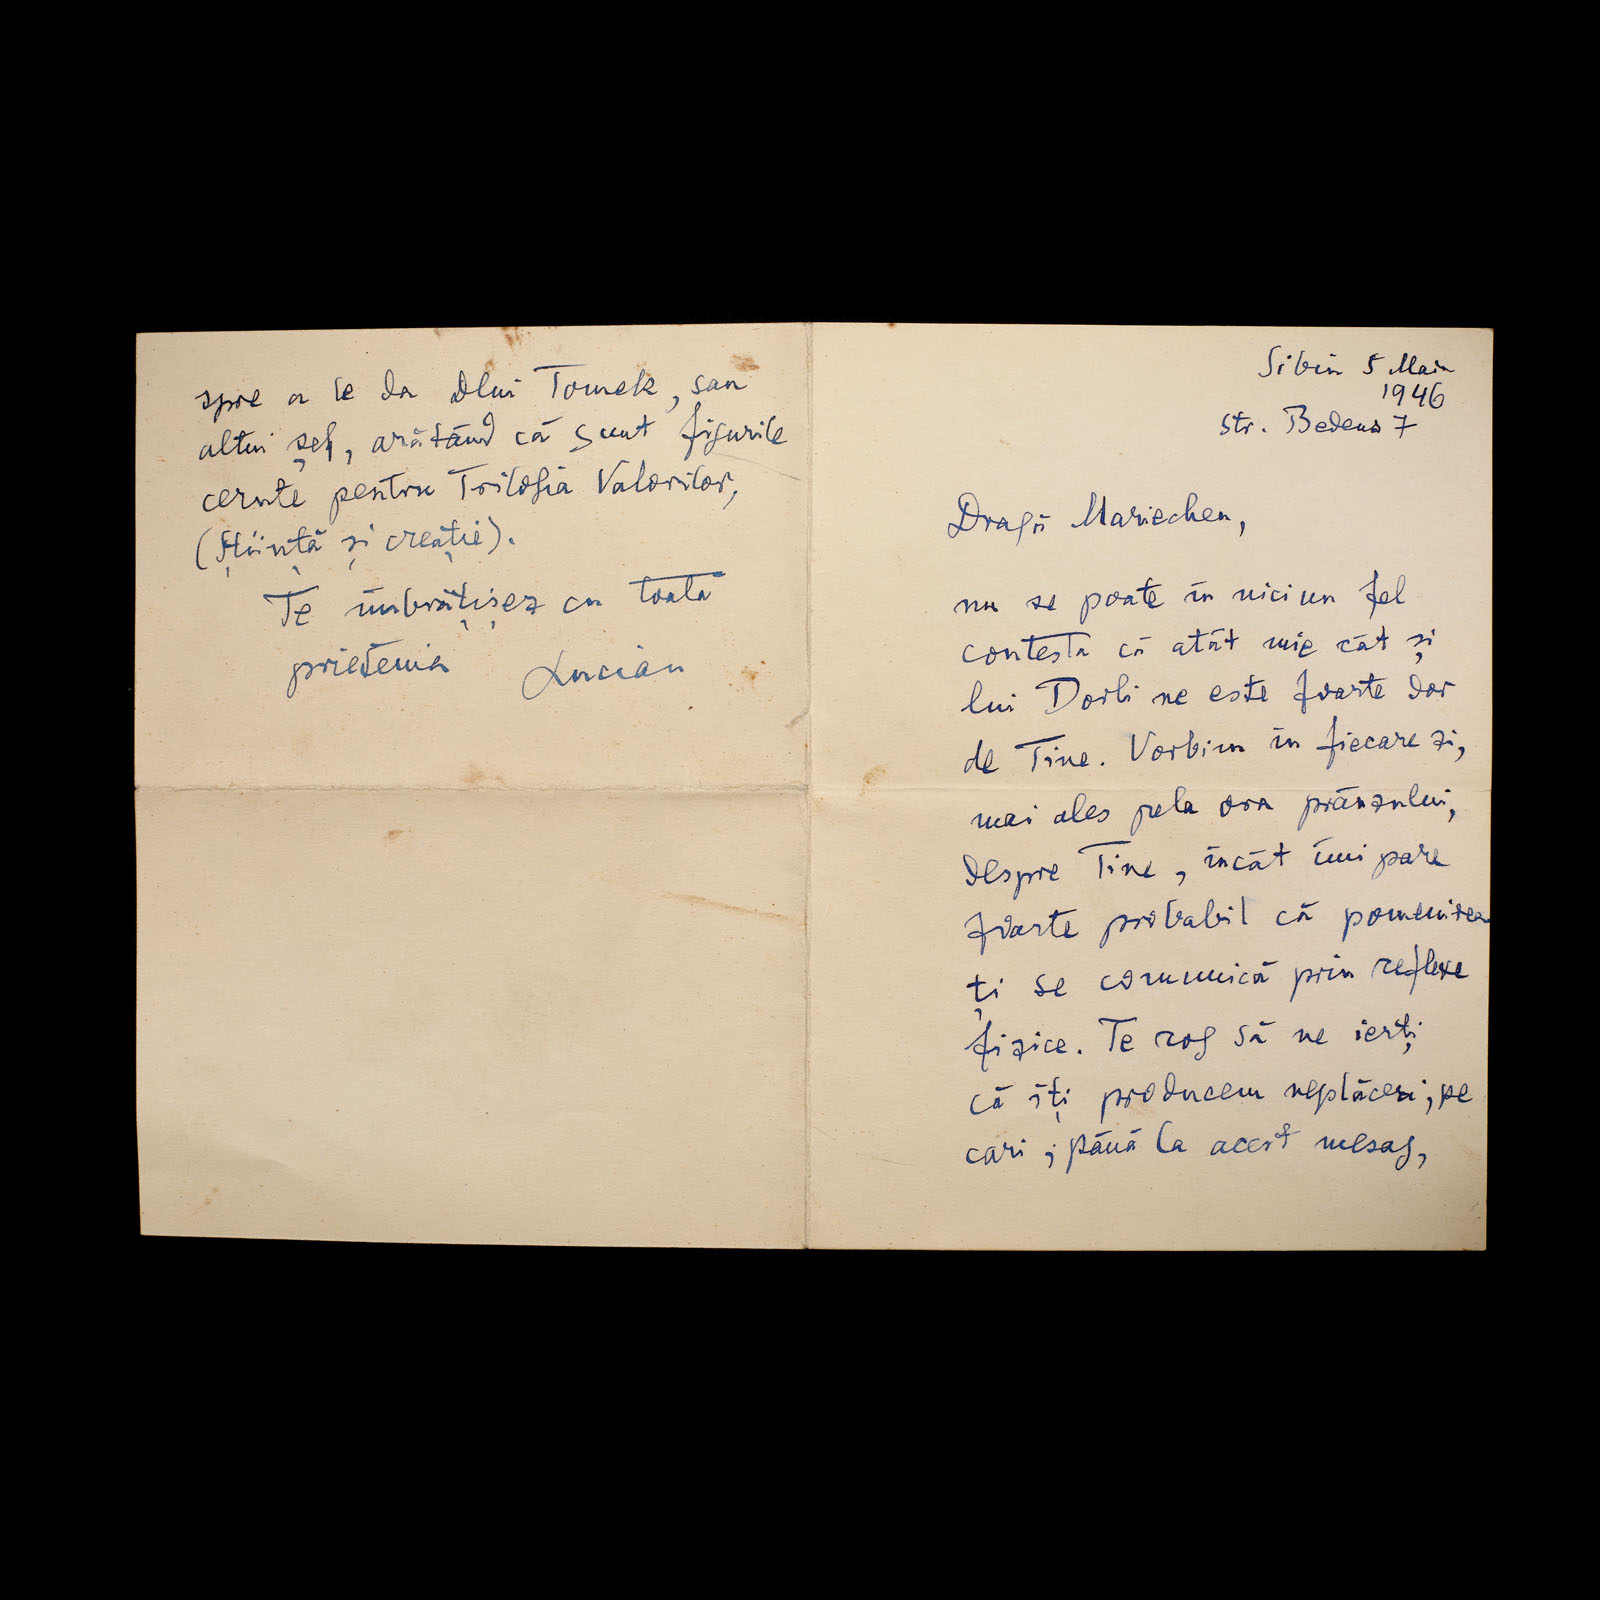 Sibiu 5 Maiu
1946
Str. Bedeus 7
Dragă Mariechen,
nu se poate în niciun fel
contesta că atât mie cât și
lui Dorli ne este foarte dor
de Tine. Vorbim în fiecare zi,
mai ales pela ora prânzului,
despre Tine, încât îmi pare
foarte probabil că pomenirea
ți se comunică prin reflexe
fizice. Te rog să ne ierți
că îți producem neplăceri, pe
cari, până la acest mesag,
spre a le da Dlui Tomek, sau
altui șef, arătând că sunt figurile
cerute pentru Trilogia Valorilor,
(Știință și creație).
Te îmbrățișez cu toată
prietenia Lucian